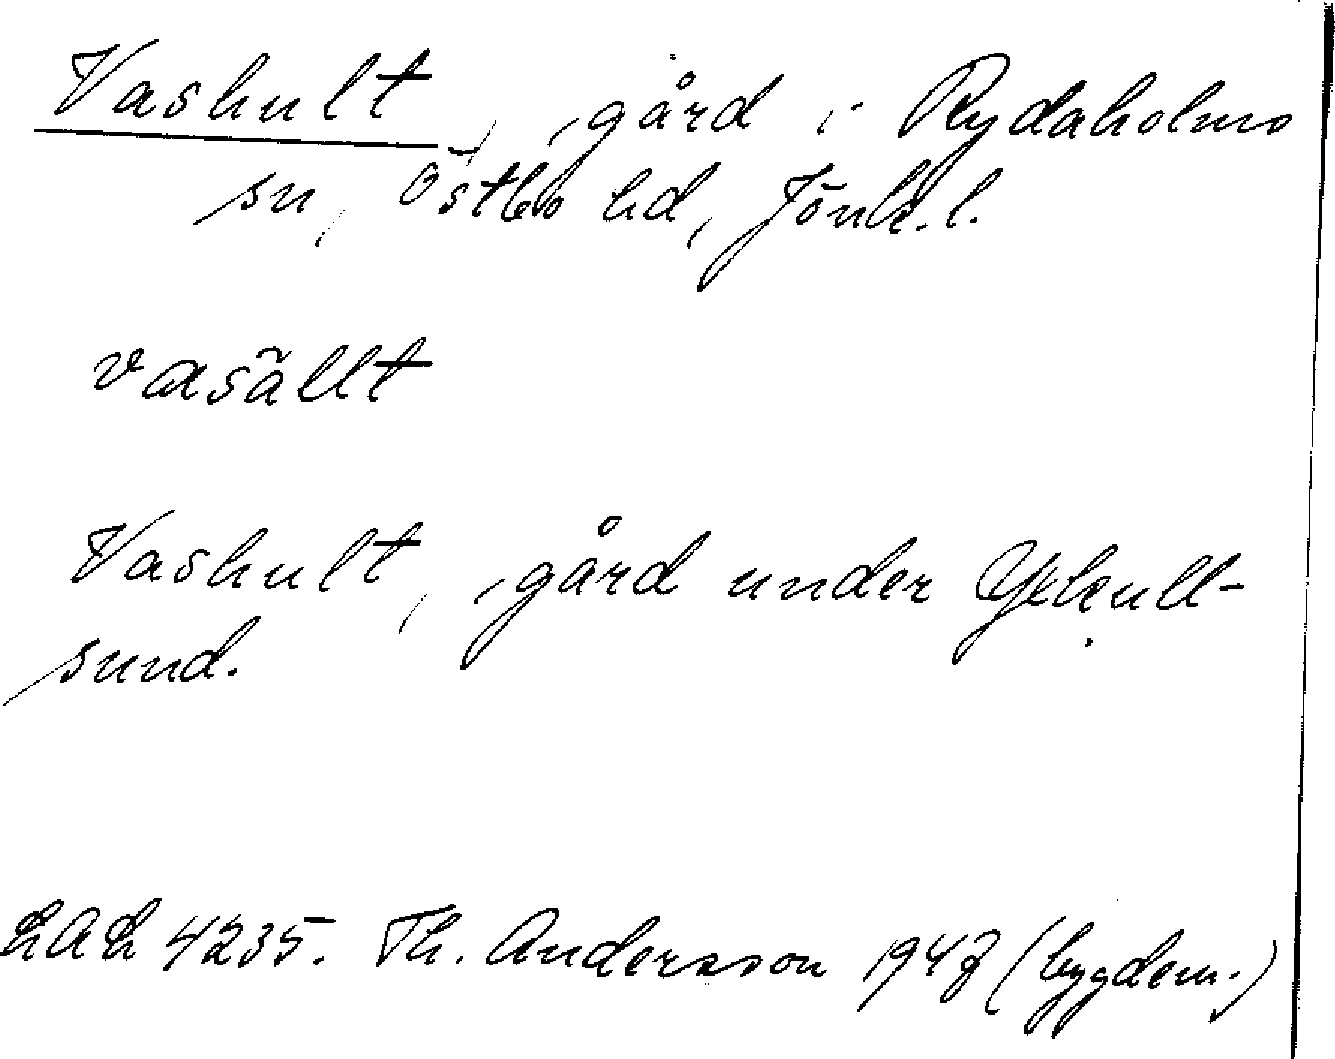 Vashult, gård i Rydaholms
sn, Östbo hd, Jönk. l.
vasällt
Vashult, gård under
sund.
LAL 4235. Th. Andersson (bygdem.)